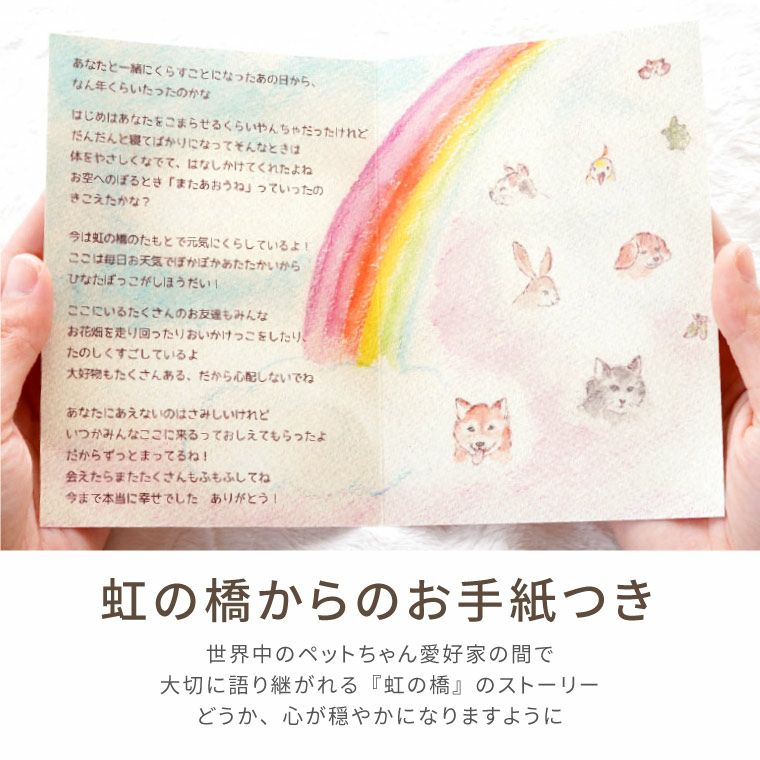 あなたと一緒にくらすことになったあの日から、
なん年くらいたったのかな
はじめはあなたをこまらせるくらいやんちゃだったけれど
だんだんと寝てばかりになってそんなときは
体をやさしくなでて、はなしかけてくれたよね
お空へのぼるとき「またあおうね」っていったの
きこえたかな？
今は虹の橋のたもとで元気にくらしているよ！
ここは毎日お天気でぽかぽかあたたかいから
ひなたぼっこがしほうだい！
ここにいるたくさんのお友達もみんな
お花畑を走り回ったりおいかけっこをしたり、
たのしくすごしているよ
大好物もたくさんある、だから心配しないでね
あなたにあえないのはさみしいけれど
いつかみんなここに来るっておしえてもらったよ
だからずっとまってるね！
会えたらまたたくさんもふもふしてね
今まで本当に幸せでした　ありがとう！
虹の橋からのお手紙つき
世界中のペットちゃん愛好家の間で
大切に語り継がれる『虹の橋』のストーリー
どうか、心が穏やかになりますように